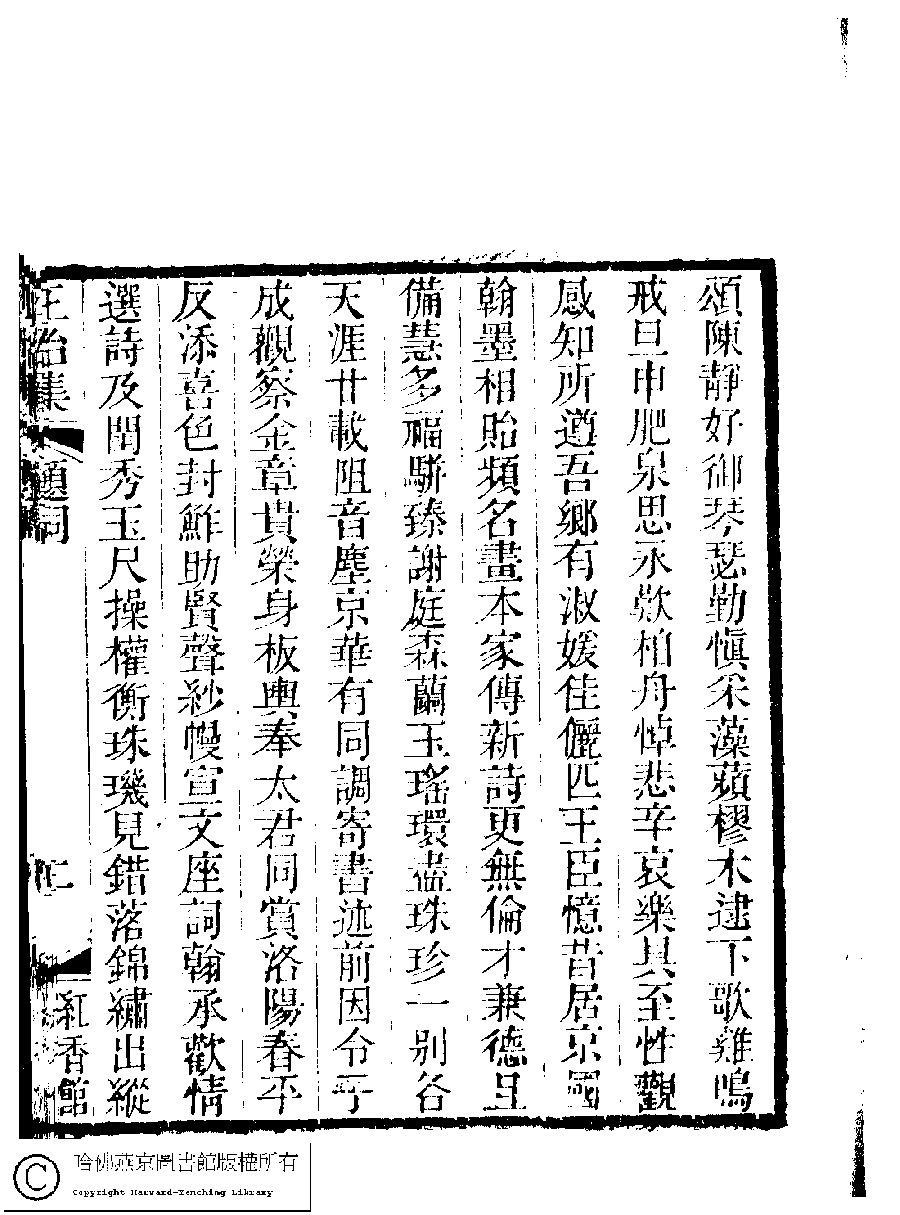 頌陳靜好御琴瑟勤愼采藻蘋樛木逮下歌雞鳴
戒旦申肥泉思永歎柏舟悼悲辛哀樂具至性觀
感知所遵吾鄉有淑媛佳儷匹王臣憶昔居京國
翰墨相貽頻名畫本家傳新詩更無倫才兼德且
備慧多福駢臻謝庭森蘭玉瑤環盡珠珍一別各
天涯廿載阻音塵京華有同調寄書述前因令子
成觀察金章貴榮身板輿奉太君同賞洛陽春平
反添喜色封鮓助賢聲紗幔宣文座詞翰承歡情
選詩及閨秀玉尺操權衡珠璣見錯落錦繡出縱
正始集 題詞 二 紅香館
哈佛燕京圖書館版權所有
Copyright Harvard-Yenching Library